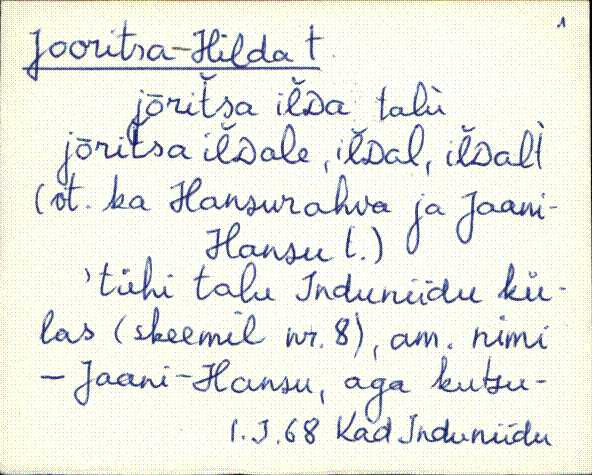 1
Jooritsa-Hilda t.
jōriťsa iľDa talù
jōriťsa iľDale, iľDal, iľDalt
(vt. ka Hansurahva ja Jaani-
Hansu t.)
'tühi talu Induniidu kü-
las (skeemil nr. 8), am. nimi
- Jaani-Hansu, aga kutsu-
1.I.68 Kad Induniidu